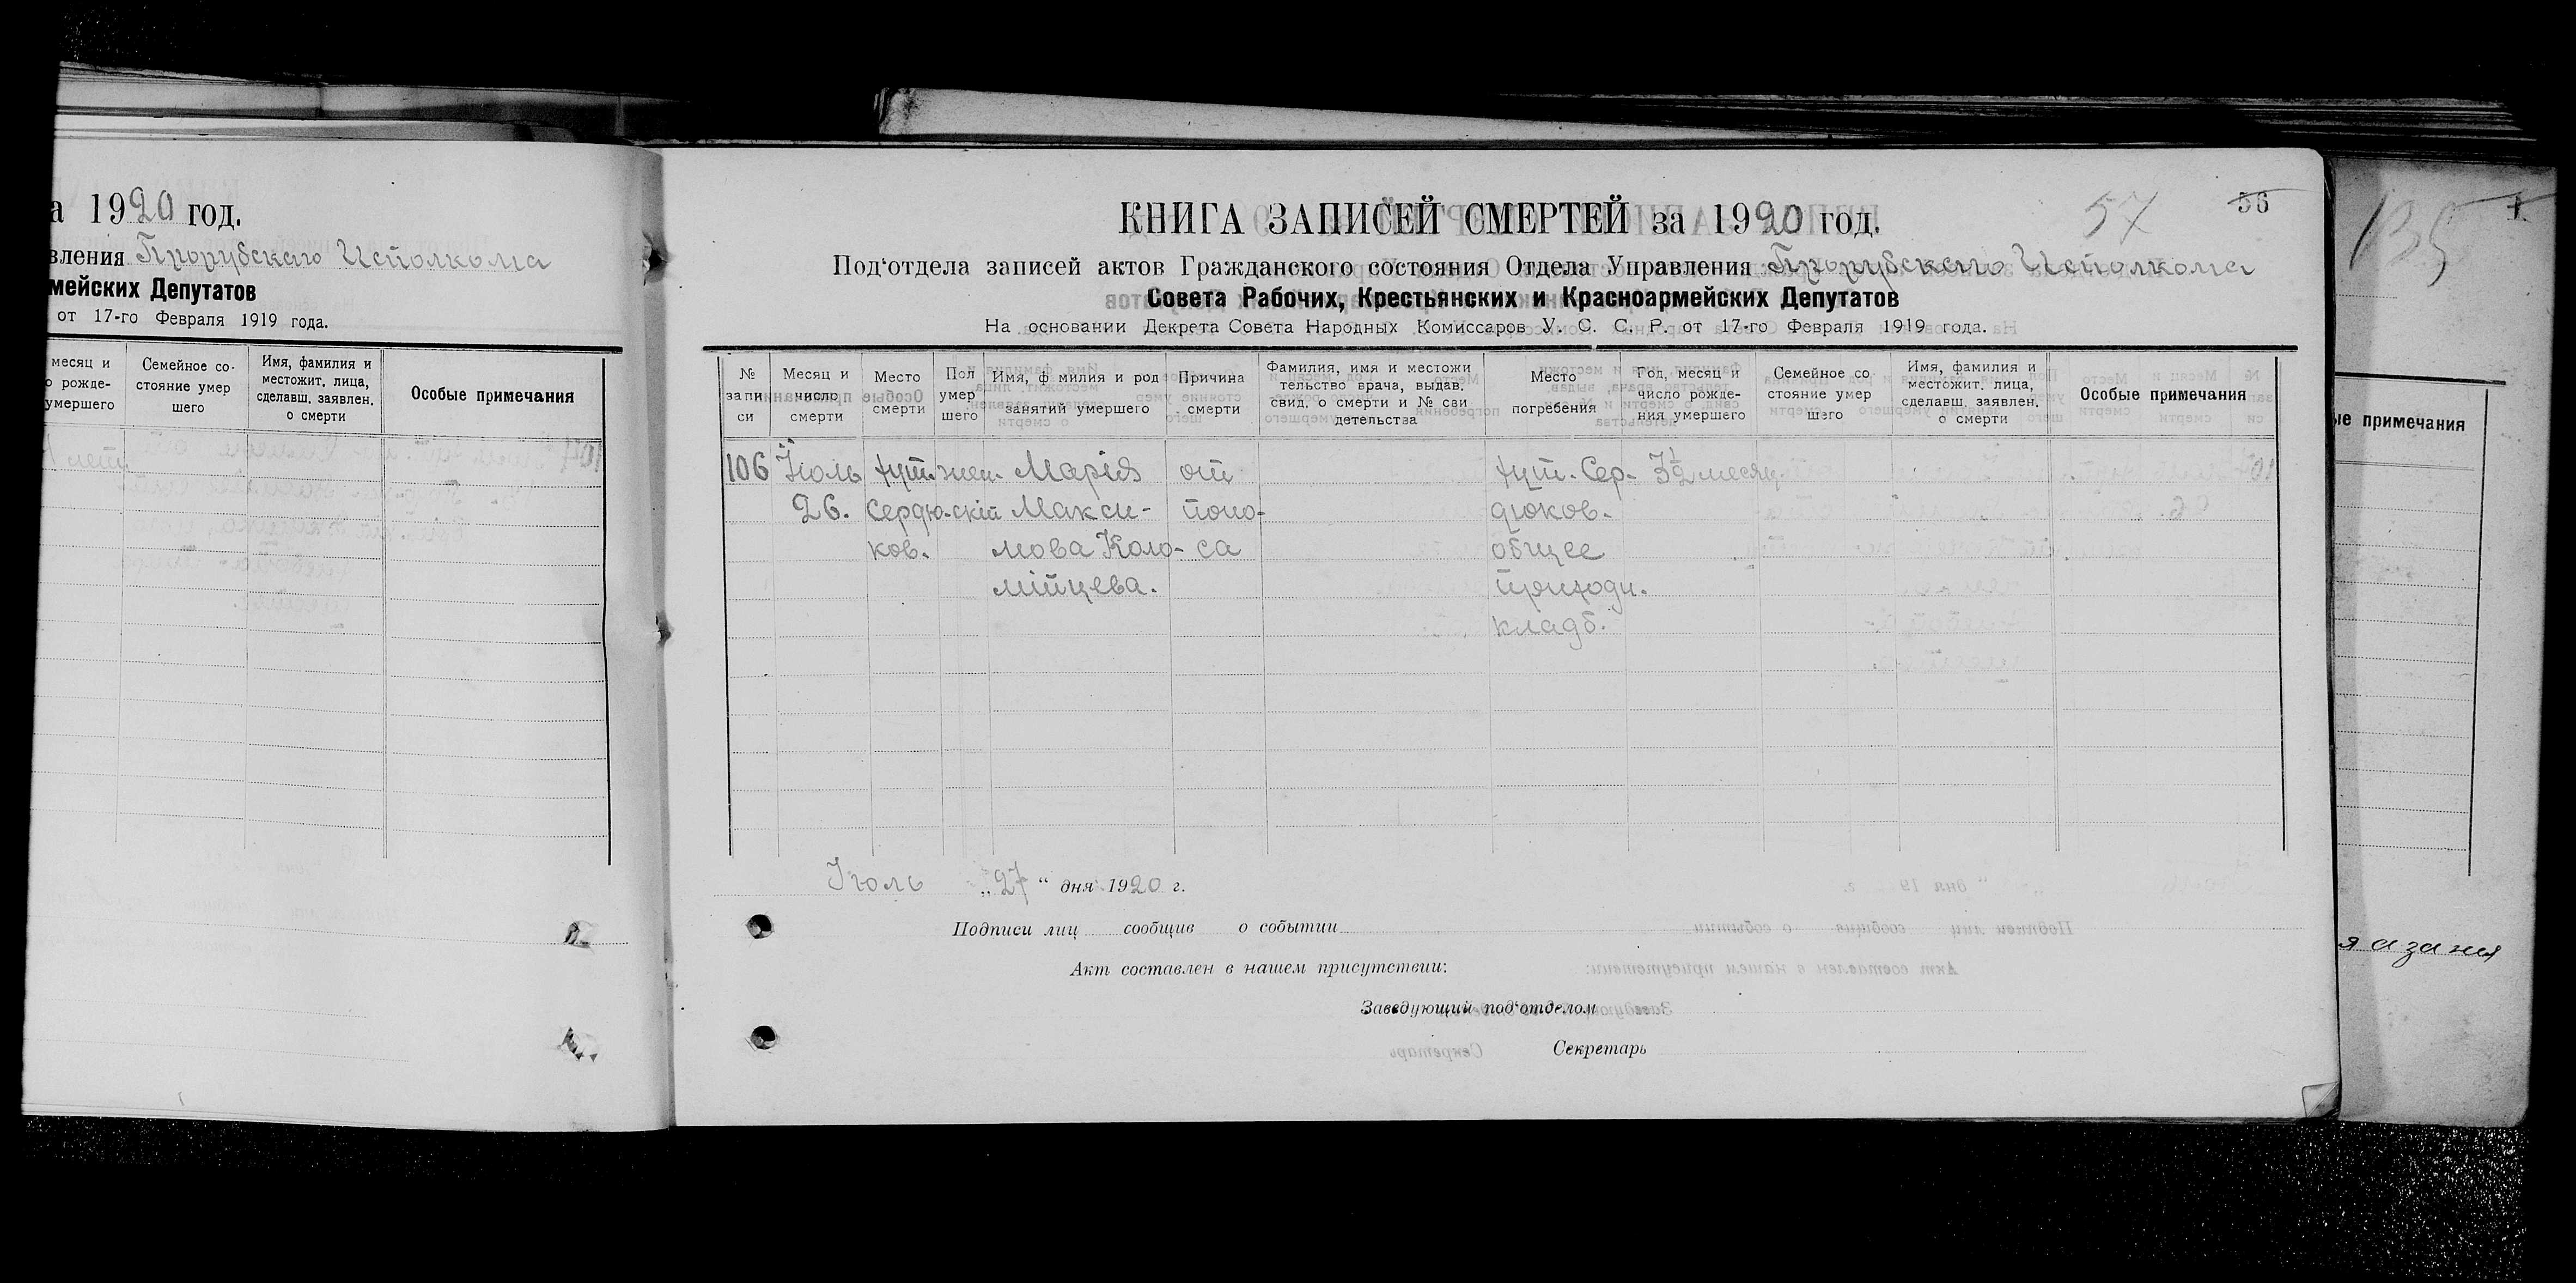 а 1920 год.
вления Прорубскаго Исполкома
мейских Депутатов
от 17-го Февраля 1919 года.
месяц и
о рожде-
умершего
Семейное со-
стояние умер
шего
Имя, фамилия и
местожит. лица,
сделавш. заявлен.
о смерти
Особые примечания
лет
КНИГА ЗАПИСЕЙ СМЕРТЕЙ за 1920 год.
57
56
Под‘отдела записей актов Гражданского состояния Отдела Управления Прорубскаго Исполкома
Совета Рабочих, Крестьянских и Красноармейских Депутатов
На основании Декрета Совета Народных Комиссаров У. С. С. Р. от 17-го Февраля 1919 года.
№
запи
си
Месяц и
число
смерти
Место
смерти
Пол
умер
шего
Имя, ф милия и род
занятий умершего
Причина
смерти
Фамилия, имя и местожи
тельство врача, выдав.
свид. о смерти и № сви
детельства
Место
погребения
Год, месяц и
число рожде-
ния умершего
Семейное со
стояние умер
шего
Имя, фамилия и
местожит. лица,
сделавш. заявлен.
о смерти
Особые примечания
106
Іюль
26.
хут.
Сердю-
ков.
жен-
скій
Марія
Макси-
мова Коло-
мійцева.
от
поно-
са
хут. Сер-
дюков.
общее
приходи.
кладб.
3½ месяц.
Іюль „27“ дня 1920 г.
Подписи лиц сообщив о событии
Акт составлен в нашем присутствии:
Заведующий под‘отделом
Секретарь
135
1
ые примечания